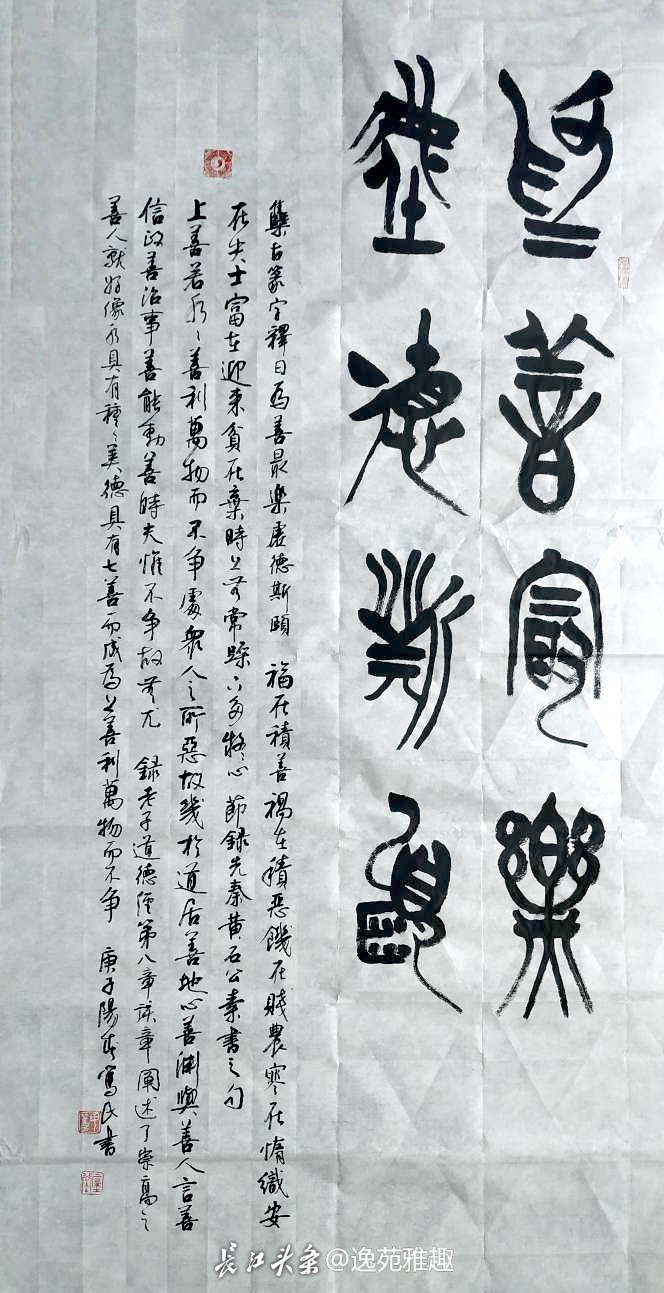 為善㝡樂
虛德斯頤
集古篆字釋曰為善最樂虛德斯頤 福在積善禍在積惡饑在賤農寒在惰織安
在失士富在迎来貧在棄時上無常躁下多疑心 節録先秦黄石公素書之句
上善若水〻善利萬物而不争處衆人之所惡故幾於道居善地心善渊與善人言善
信政善治事善能動善時夫惟不争故無尤 録老子道德经第八章该章闡述了崇高之
善人就好像水具有種〻美德具有七善而成為上善利萬物而不争 庚子陽春 書
长江头条@逸苑雅趣